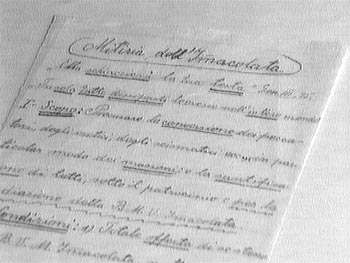 Milizia dell'Immacolata
"Ella schiaccerà la tua testa" Gen III. 15.
Tu sola tutte distrutto l'eresie nell'intero mondo
I- Scopo: Procurare la conversione dei pecca-
tori, degli eretici, degli scismatici ecc. e in par-
ticolar modo dei massoni; e la santifica-
zione di tutti, sotto il patrocinio e per la
mediazione della B. M. V. Immacolata.
Condizioni: 1) Totale offerta di se stesso
B. V. M. Immacolata